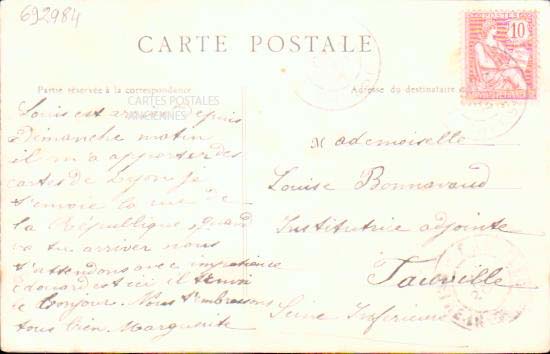 692984
CARTE POSTALE
POSTES
10
Partie réservée à la correspondance
Adresse du destinataire
CARTES POSTALES
ANCIENNES
Louis est arrivé depuis
Démanche matin
il m'a apporter des
cartes de Lyon je
t'envoie la rue de
la République, quand
va tu arriver nous
t'attendons avec impatience
édouard est ici il t'envoi
le bonjour. Nous t'embrassons
tous bien. Marguerite
Mademoiselle
Louise Bonnavaud
Institutrice adjointe
Tauville
Seine Inférieure